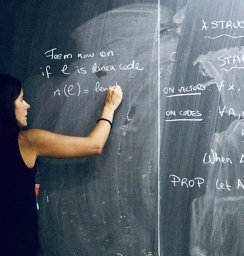 From now on
if C is linear code
n(C) = len
* STRUC
C
STA
ON VECTORS ∀ x,
ON CODES : ∀ A,
When A
PROP Let A